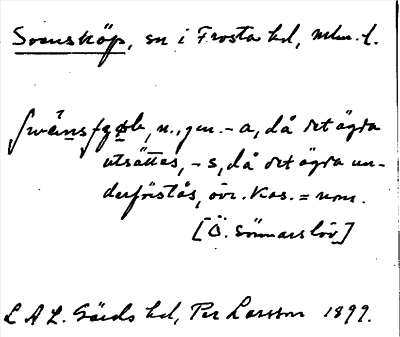 Svensköp, sn i Frosta hd, Mlm. l.
swänsſɡøb, n., gen. -a, då det ägda
utsättes, -s, då det ägda un-
derförstås, övr. kas. = nom.
[Ö. Sönnarslöv]
L A L. Gärds hd, Per Larsson 1899.